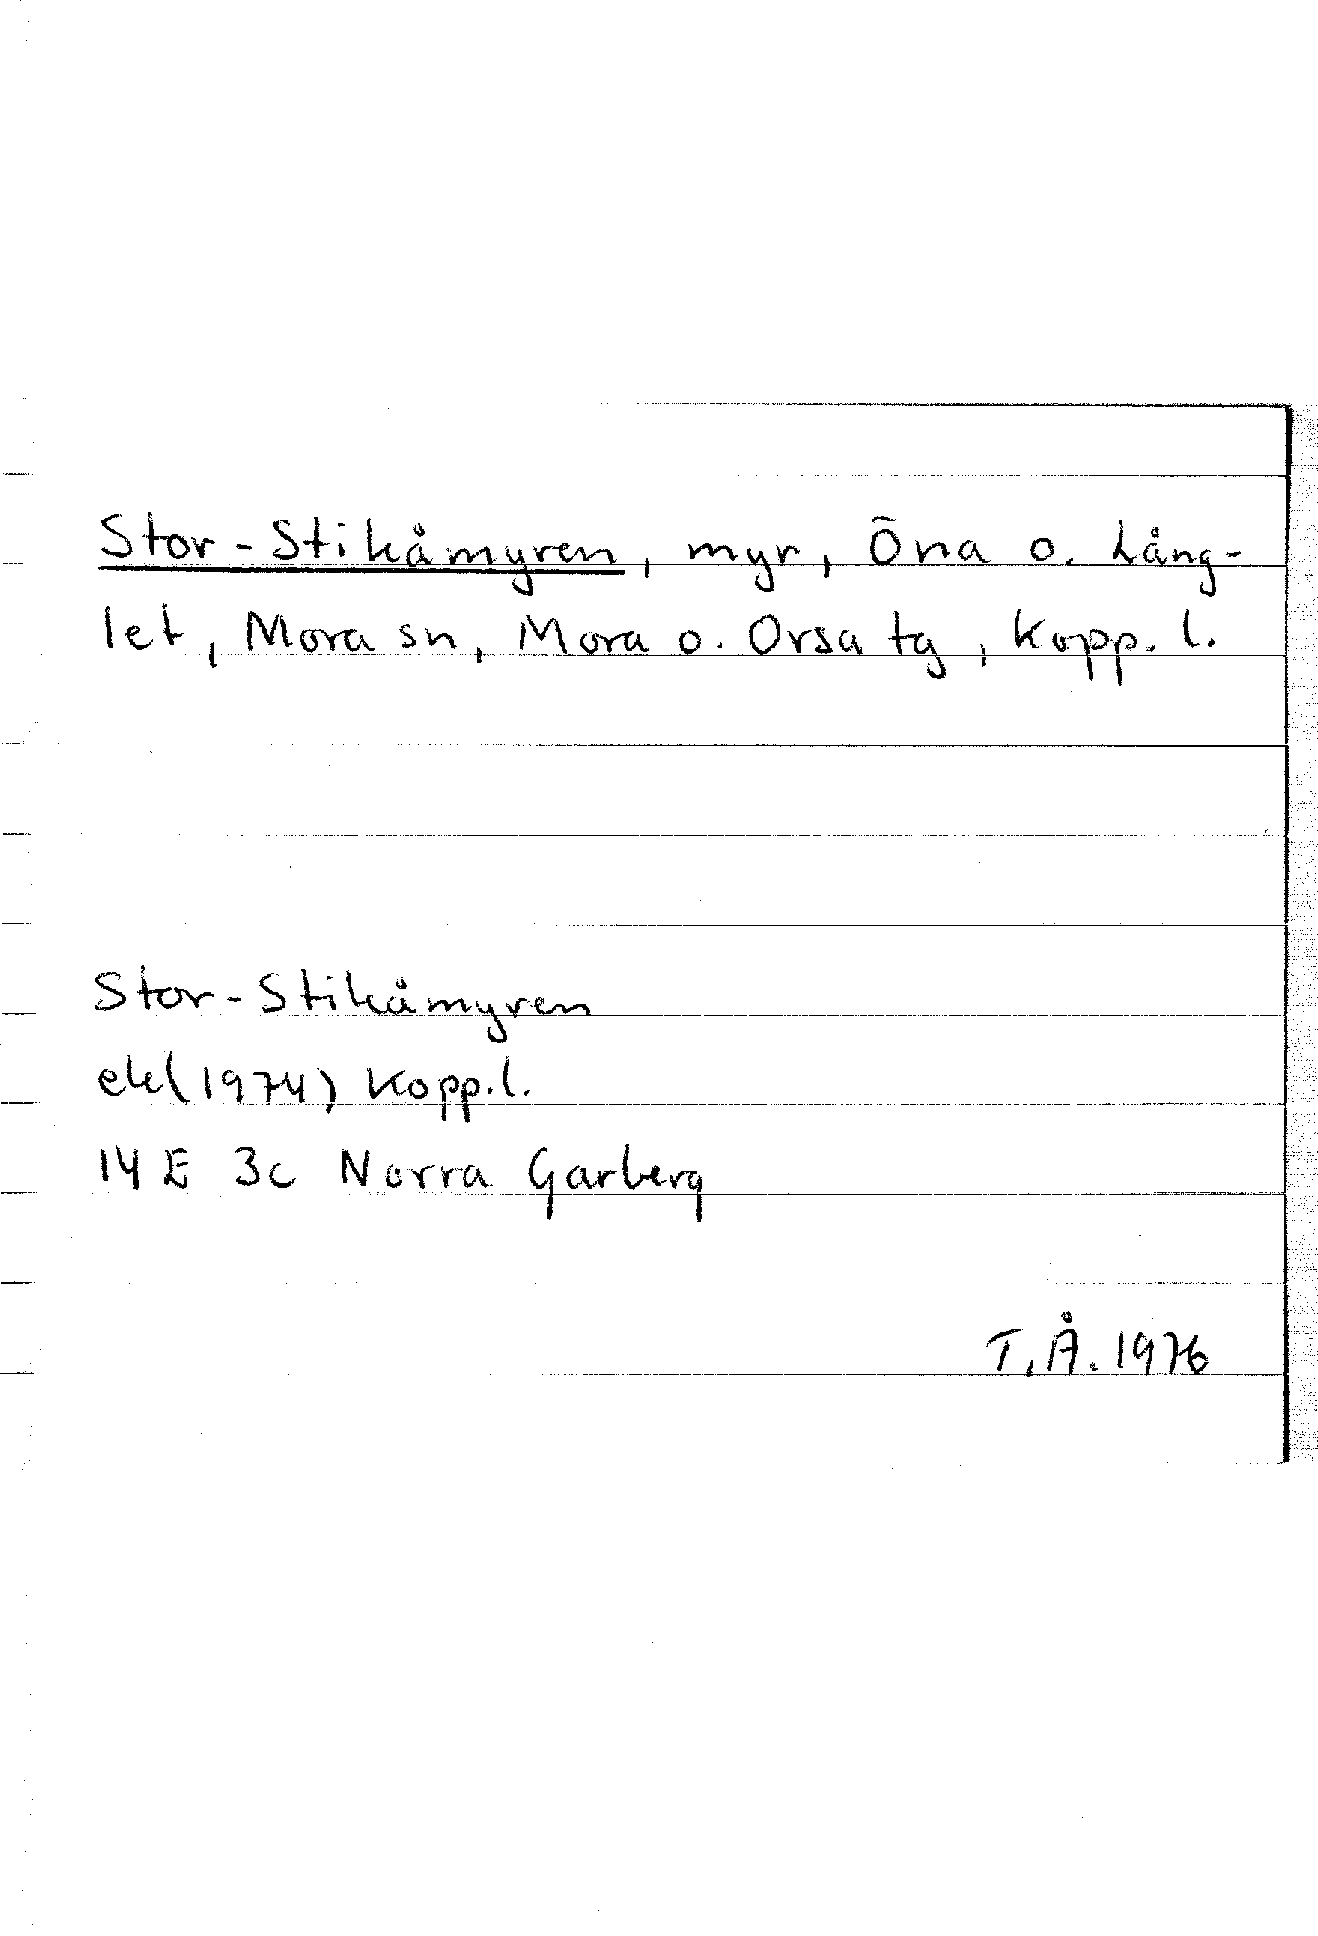 Stor-Stikåmyren, myr, Öna o. Lång-
let, Mora sn, Mora o. Orsa tg, Kopp. l.
Stor-Stikåmyren
ek (1974) Kopp.l.
14 E 3c Norra Garberg
T.Å. 1976